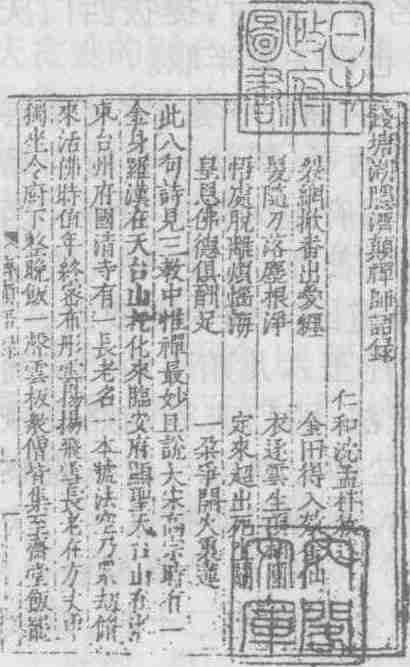 日本
政府
圖書
錢塘湖隱濟顛禪師語錄
仁和沈孟柈
裂網掀番出愛纏　金田得入金仙
髮隨刀落塵根淨　衣逐雲生頂圓
悟處脫離煩惱海　定來超出死
皇恩佛德俱酬足　一朵爭開火裏蓮
此八句詩見三教中惟禪最妙且說大宋高宗時有一
金身羅漢在天台山托化來臨安府顯聖天台山在浙
東台州府國清寺有一長老名一本號法空乃累劫修
來活佛時值年終密布彤雲揚揚飛雪長老在方丈中
獨坐令厨下整飯一聲雲板衆僧皆集至齋堂飯罷
內閣
文庫